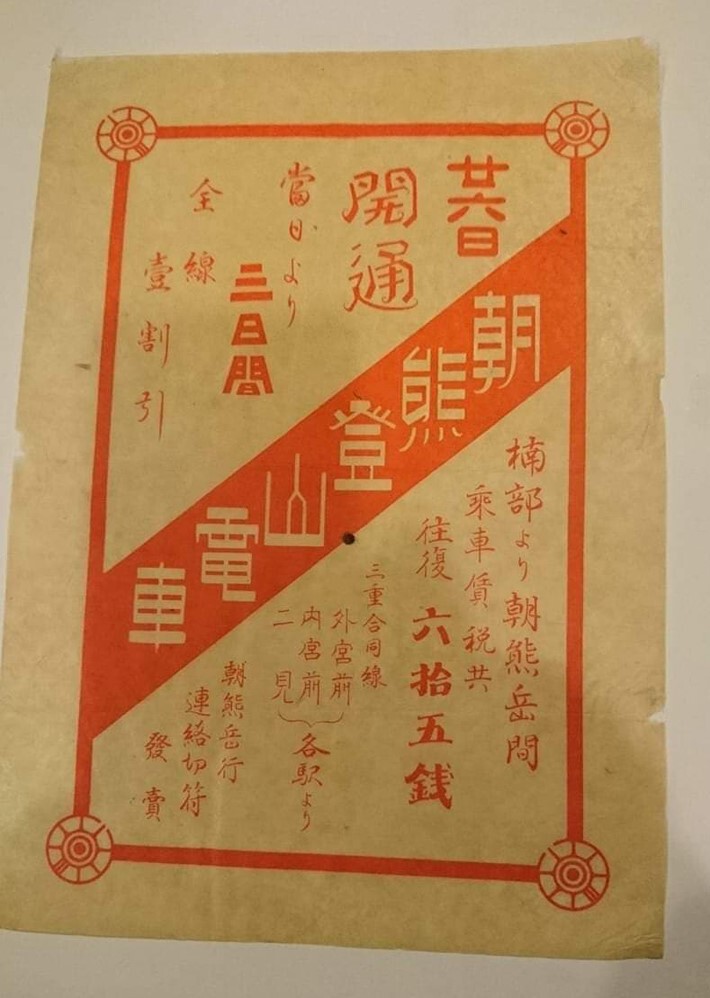 廿六日
開通
當日より
三日間
全線
壹割引
朝熊登山電車
楠部より朝熊岳間
乘車賃税共
往復六拾五銭
三重合同線
外宮前
内宮前
二見
各駅より
朝熊岳行
連絡切符
發賣